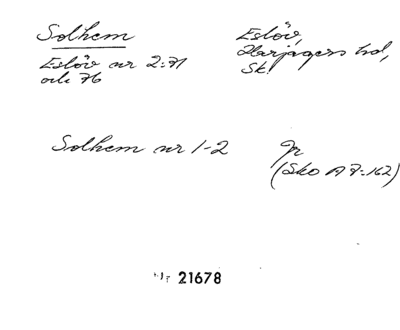 Solhem
Eslöv,
Harjagers hd,
Sk.
Eslöv nr 2:71
och 76
Solhem nr 1-2
Jr
(Sko A7:162)
21678